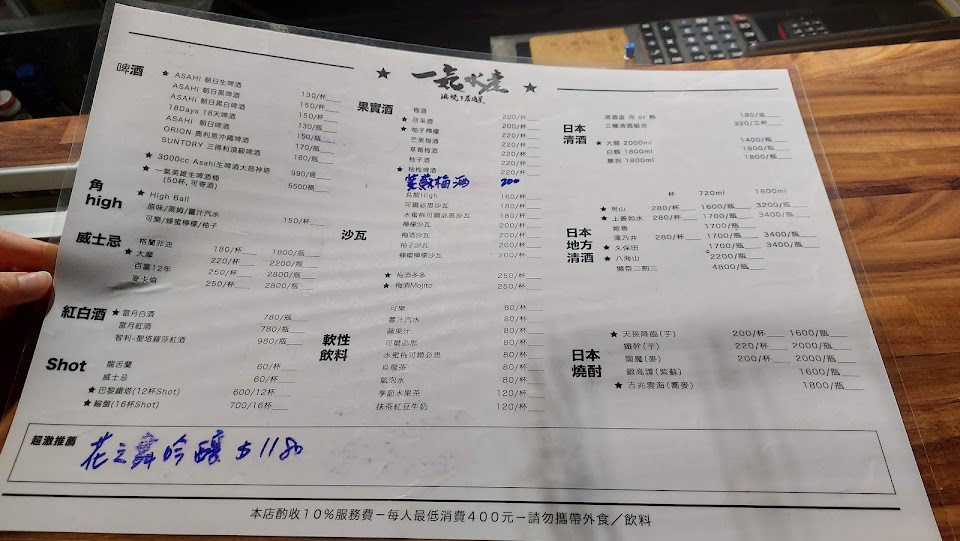 ★ 一氣水走 ★
啤酒
★ ASAHI 朝日生啤酒 130/杯
ASAHI 朝日黑啤酒 150/杯
ASAHI 朝日黑白啤酒 150/杯
18Days 18天啤酒 130/瓶
ASAHI 朝日啤酒 150/瓶
ORION 奧利恩沖繩啤酒 170/瓶
SUNTORY 三得利頂級啤酒 180/瓶
★ 3000cc Asahi生啤酒大怒神塔 990/塔
★ 一氣英雄生啤酒桶 5500桶
(50杯,可寄酒)
角high
★ High Ball
原味/萊姆/薑汁汽水
可樂/蜂蜜檸檬/柚子 150/杯
威士忌
格蘭菲迪 180/杯 1800/瓶
★ 大摩 220/杯 2200/瓶
百富12年 250/杯 2800/瓶
麥卡倫 250/杯 2800/瓶
紅白酒
★ 當月白酒 780/瓶
當月紅酒 780/瓶
智利-聖塔羅莎紅酒 980/瓶
Shot
龍舌蘭 60/杯
威士忌 60/杯
★ 巴黎鐵塔(12杯Shot) 600/12杯
★ 輪盤(16杯Shot) 700/16杯
果實酒
梅酒 200/杯
★ 蘋果酒 220/杯
★ 柚子檸檬 220/杯
芒果梅酒 220/杯
草莓梅酒 220/杯
柚子酒 220/杯
★ 柚梅啤酒 220/杯
紫蘇梅酒 200
沙瓦
烏龍High 150/杯
可爾必思沙瓦 180/杯
水蜜桃可爾必思沙瓦 180/杯
檸檬沙瓦 200/杯
梅酒沙瓦 200/杯
柚子沙瓦 200/杯
蜂蜜檸檬沙瓦 200/杯
★ 梅酒多多 250/杯
★ 梅酒Mojito 250/杯
軟性飲料
可樂 80/杯
薑汁汽水 80/杯
蘋果汁 80/杯
可爾必思 80/杯
水蜜桃可爾必思 80/杯
烏龍茶 80/杯
氣泡水 80/杯
季節水果茶 120/杯
抹茶紅豆牛奶 120/杯
日本清酒
清酒壺 冷 or 熱 180/壺
三種清酒組合 320/三杯
★ 大關 2000ml 1400/瓶
白鶴 1800ml 1800/瓶
慶祝 1800ml 1800/瓶
日本地方清酒
杯 720ml 1800ml
★ 男山 280/杯 1600/瓶 3200/瓶
★ 上善如水 280/杯 1700/瓶 3400/瓶
1700/瓶
澤乃井 280/杯 1700/瓶 3400/瓶
★ 久保田 1700/瓶 3400/瓶
★ 八海山 2200/瓶
獺祭二割三 4800/瓶
日本燒酎
★ 天孫降臨(芋) 200/杯 1600/瓶
鐵幹(芋) 220/杯 2000/瓶
閻魔(麥) 200/杯 2000/瓶
鍛高譚(紫蘇) 1600/瓶
★ 吉光雲海(蕎麥) 1800/瓶
超激推薦
花之舞吟釀 $1180
本店酌收10%服務費－每人最低消費400元－請勿攜帶外食／飲料